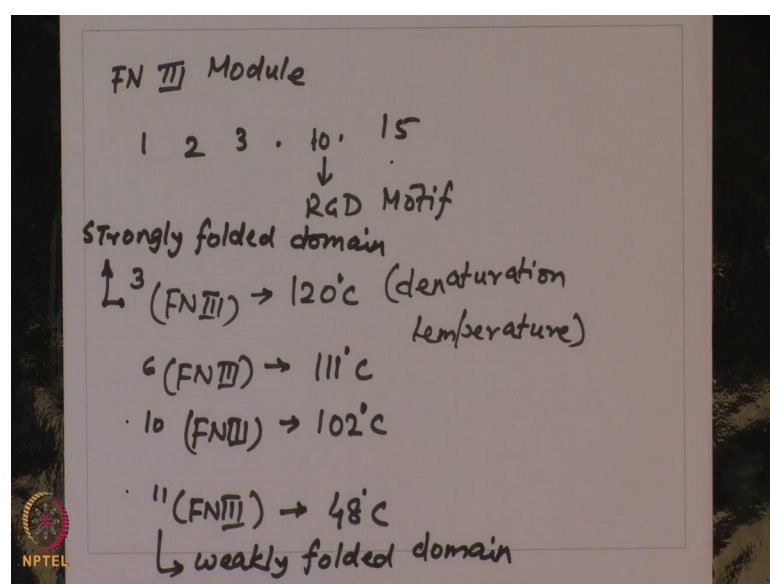 FN III Module
1 2 3 . 10 . 15
↓ .
RGD Motif
Strongly folded domain
↳ 3 (FNIII) → 120°C (denaturation
temperature)
6 (FNIII) → 111°C
. 10 (FNIII) → 102°C
. 11 (FNIII) → 48°C
↳ weakly folded domain
NPTEL